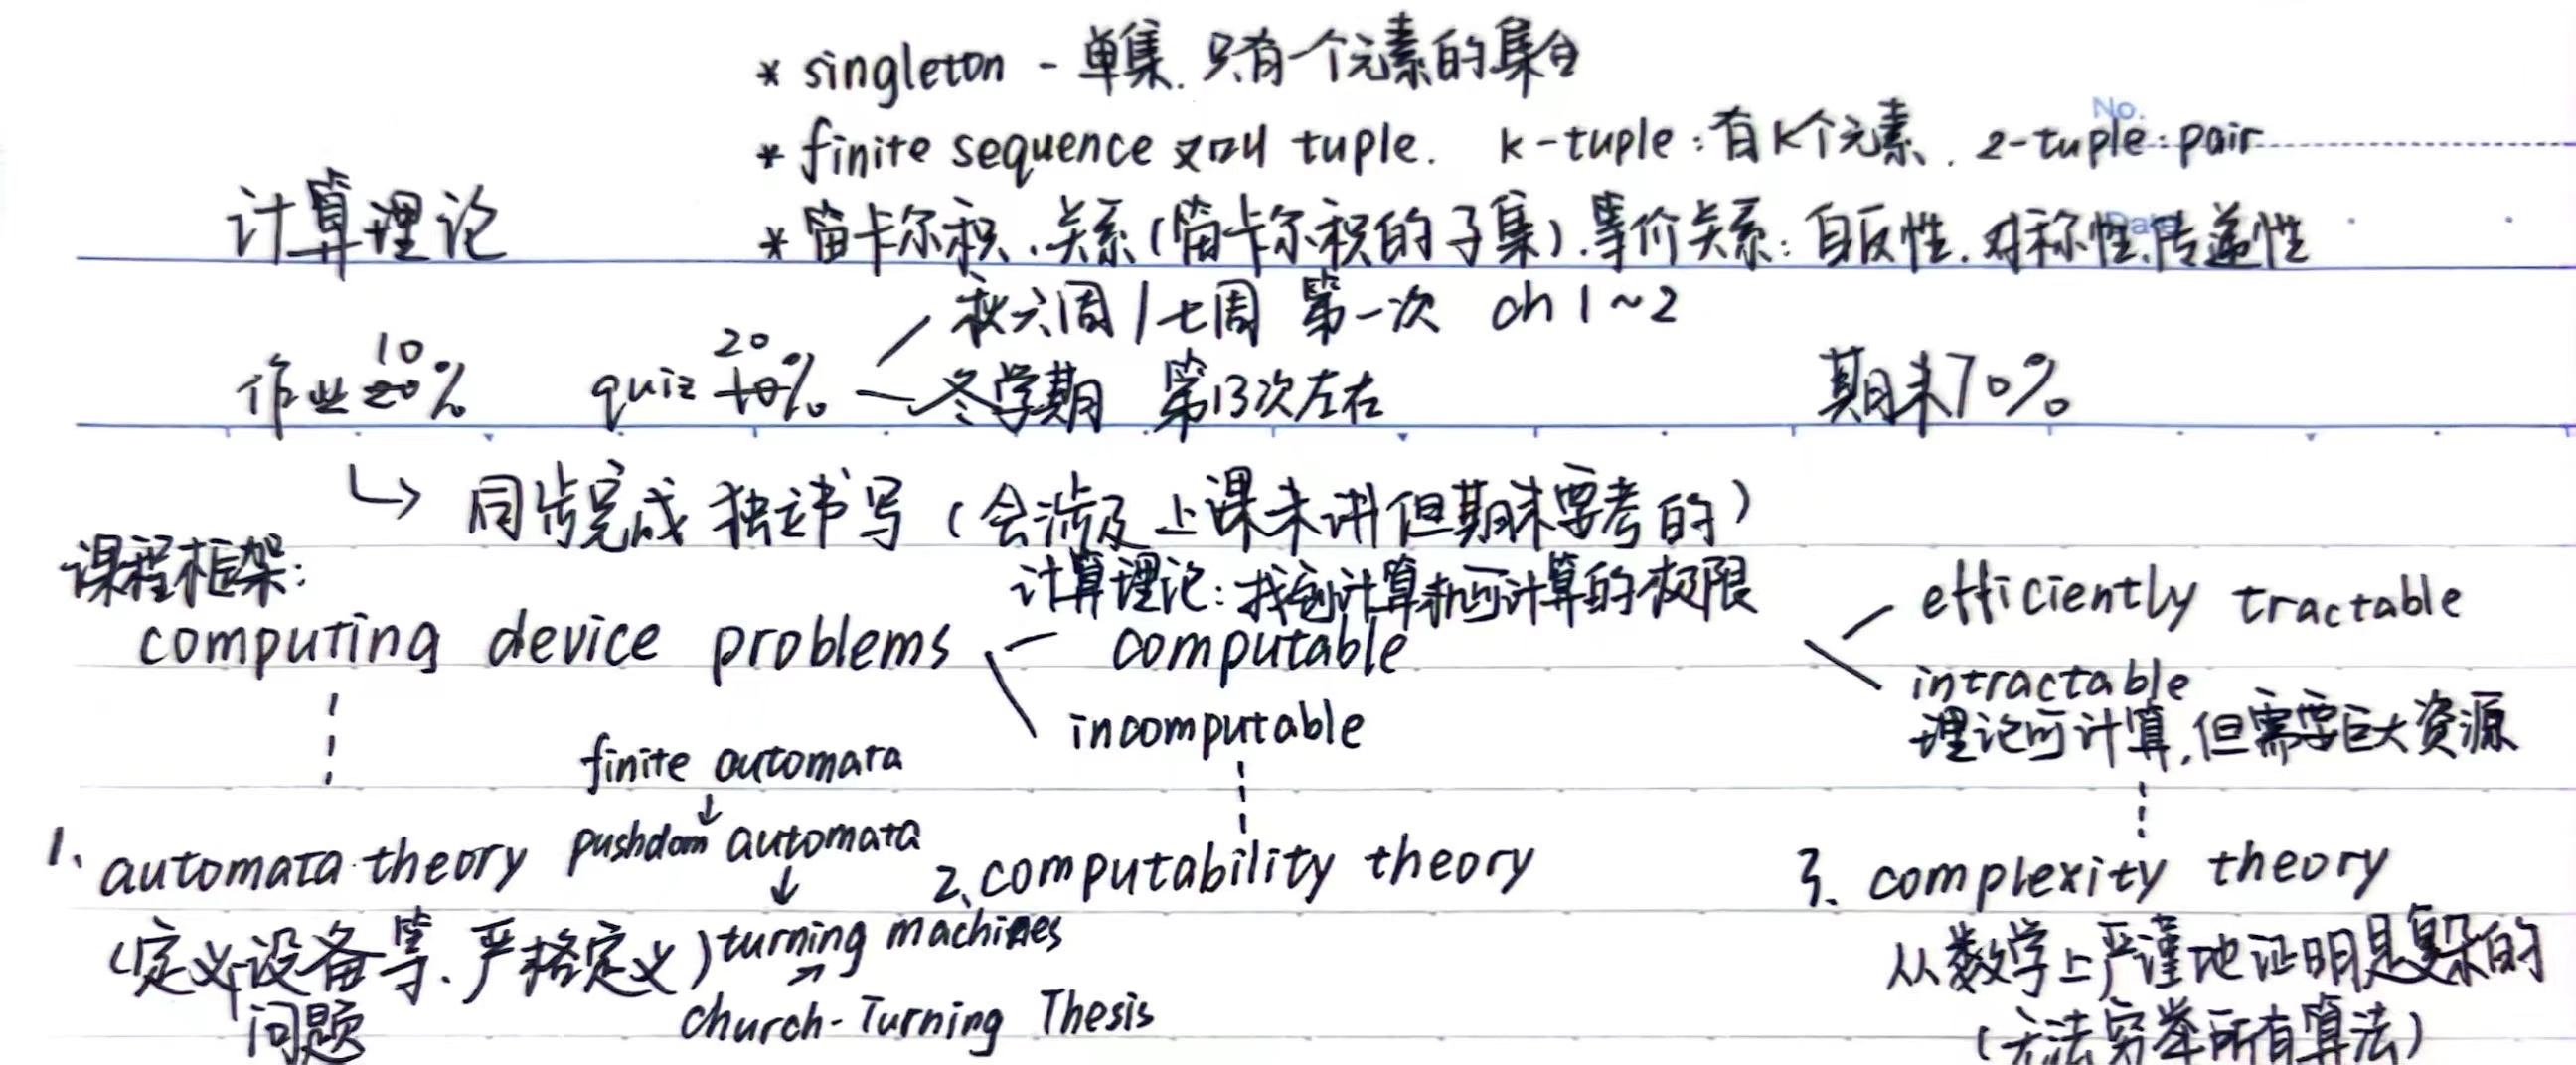 * singleton - 单集. 只有一个元素的集合
No.
* finite sequence 又叫 tuple. k-tuple:有k个元素. 2-tuple:pair
计算理论
* 笛卡尔积.关系(笛卡尔积的子集).等价关系:自反性.对称性.传递性
Date
秋六周/七周 第一次 ch 1~2
10
作业20%
20
quiz 10%
冬学期 第13次左右
期末70%
↳ 同步完成 独立书写 (会涉及上课未讲但期末要考的)
课程框架:
计算理论:找到计算机可计算的极限
computing device problems
computable
incomputable
efficiently tractable
intractable
理论可计算,但需要巨大资源
finite automata
↓
pushdown automata
↓
turning machines
↗
church-Turning Thesis
1、automata theory
(定义设备等、严格定义)
问题
2、computability theory
3、complexity theory
从数学上严谨地证明是复杂的
(无法穷举所有算法)